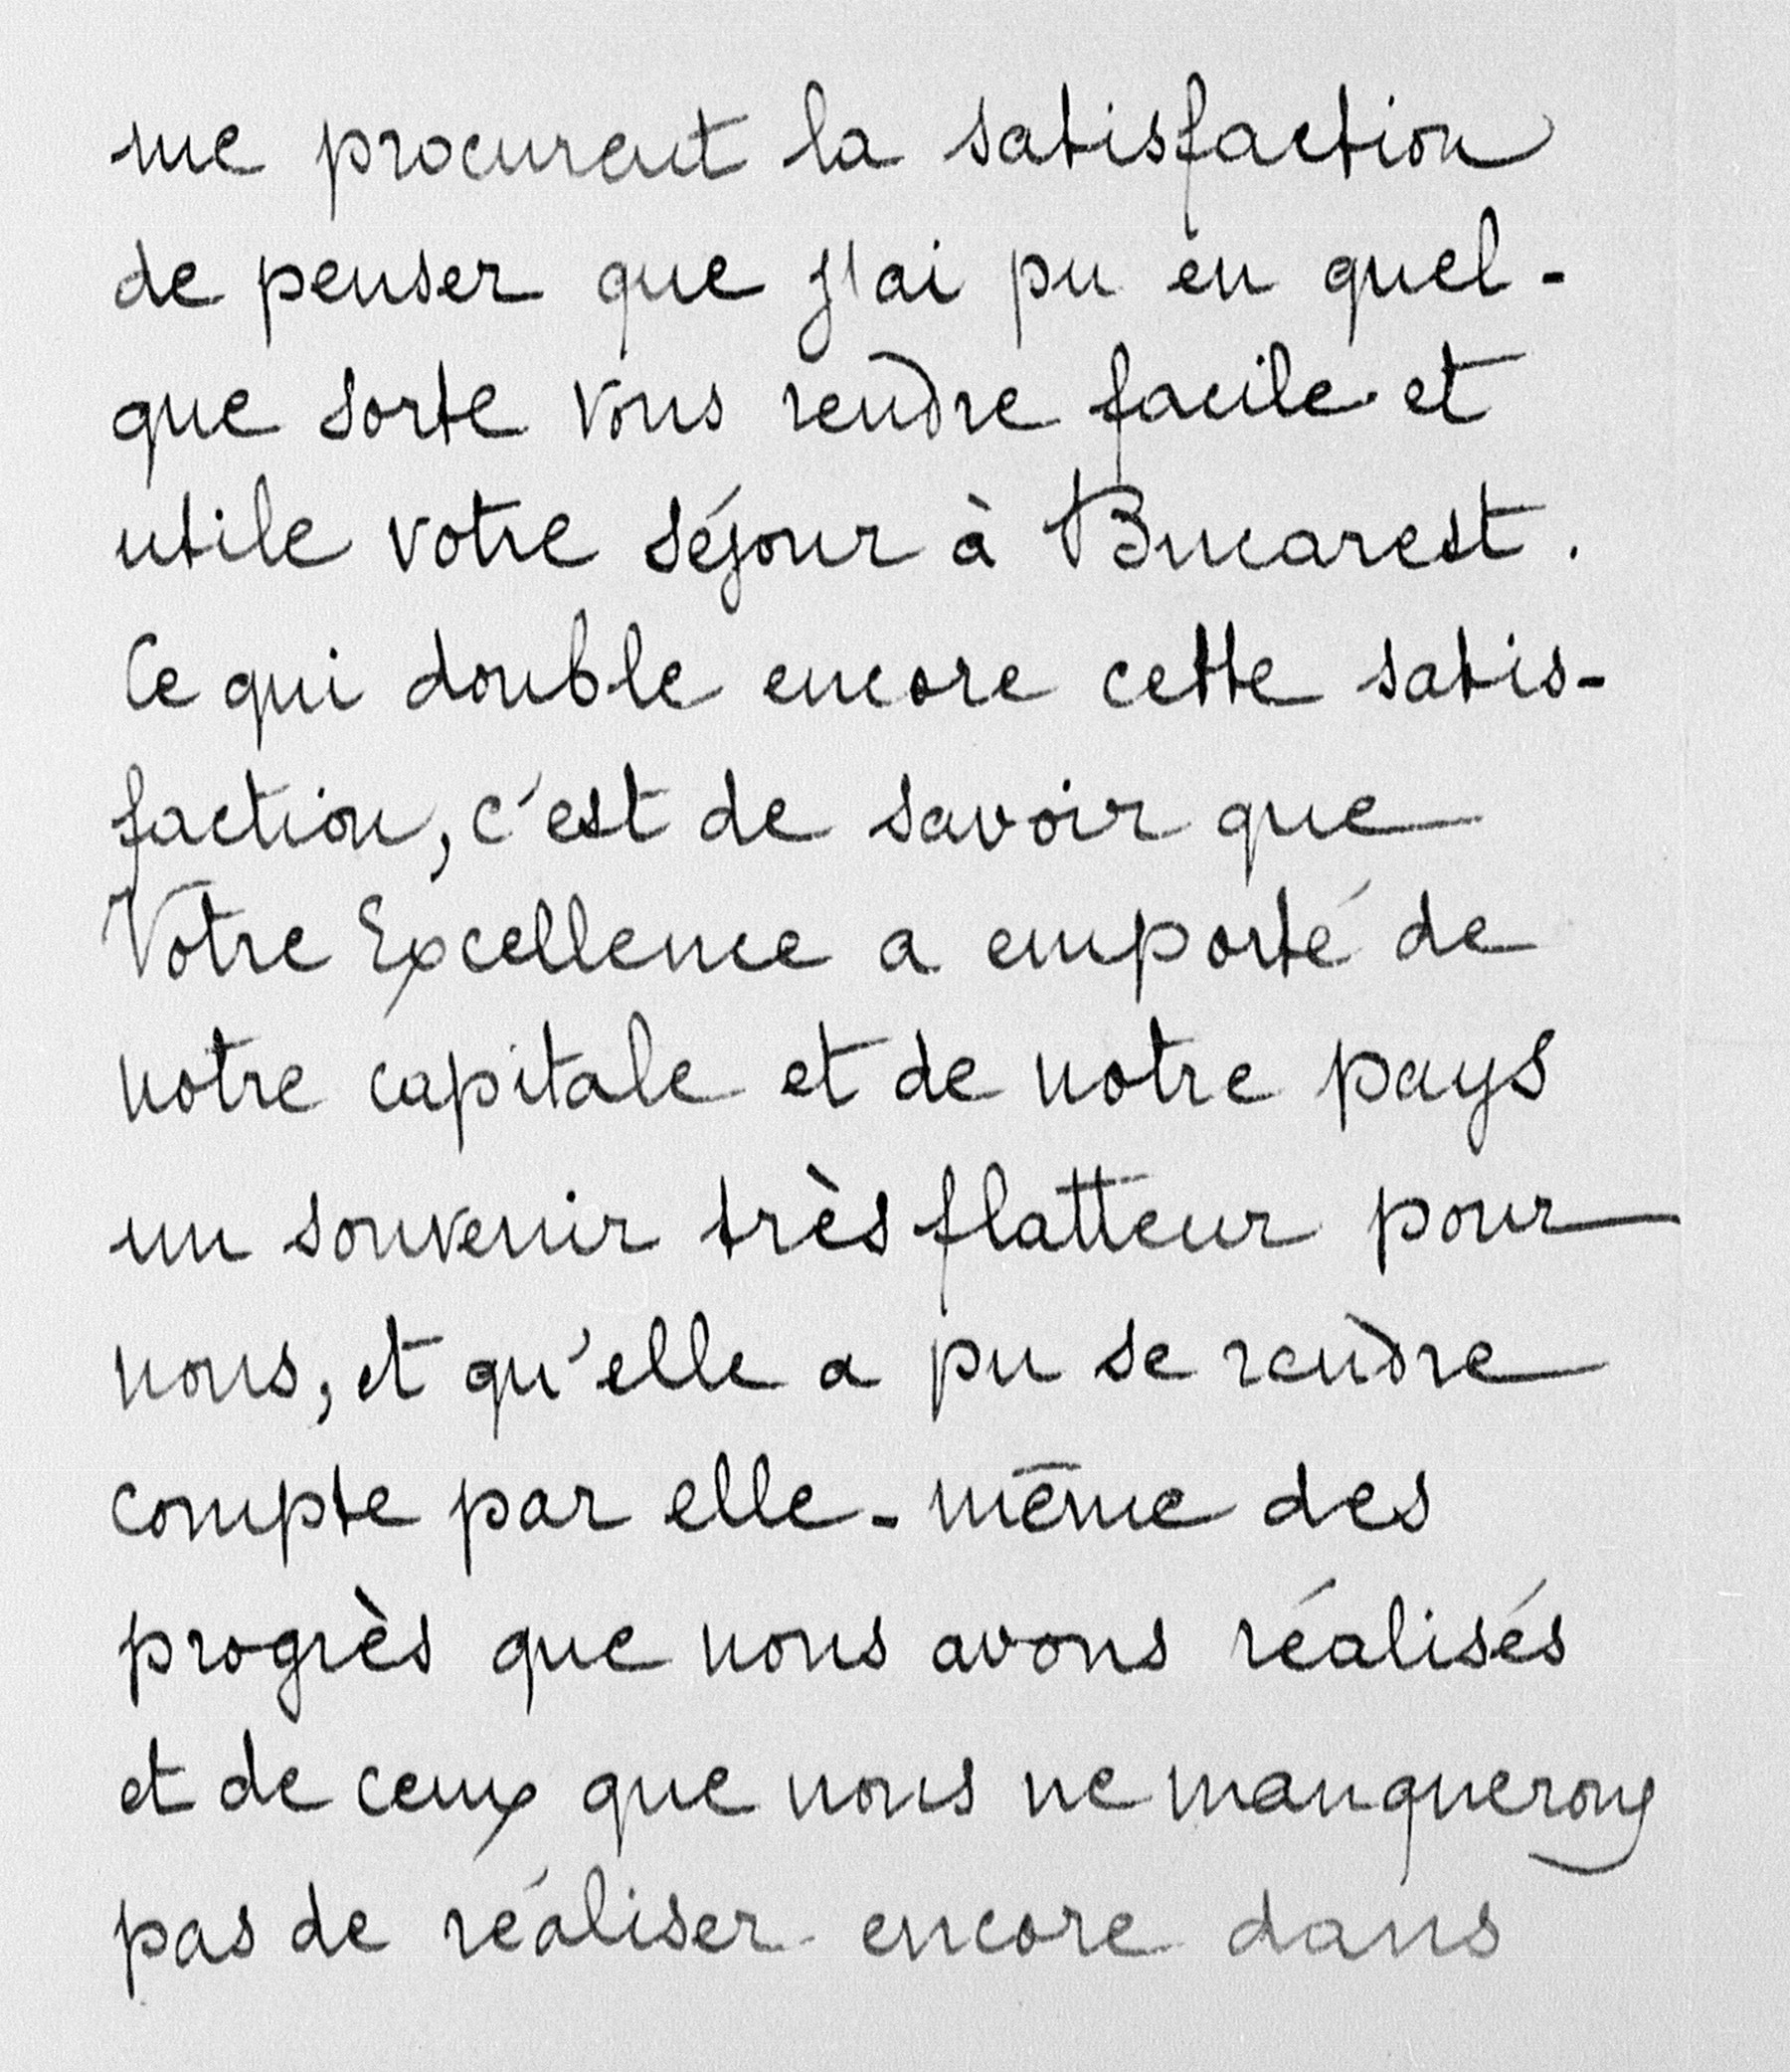 me procurent la satisfaction
de penser que j'ai pu en quel-
que sorte vous rendre facile et
utile votre séjour à Bucarest.
Ce qui double encore cette satis-
faction, c'est de savoir que
Votre Excellence a emporté de
notre capitale et de notre pays
un souvenir très flatteur pour
nous, et qu'elle a pu se rendre
compte par elle-même des
progrès que nous avons réalisés
et de ceux que nous ne manquerons
pas de réaliser encore dans